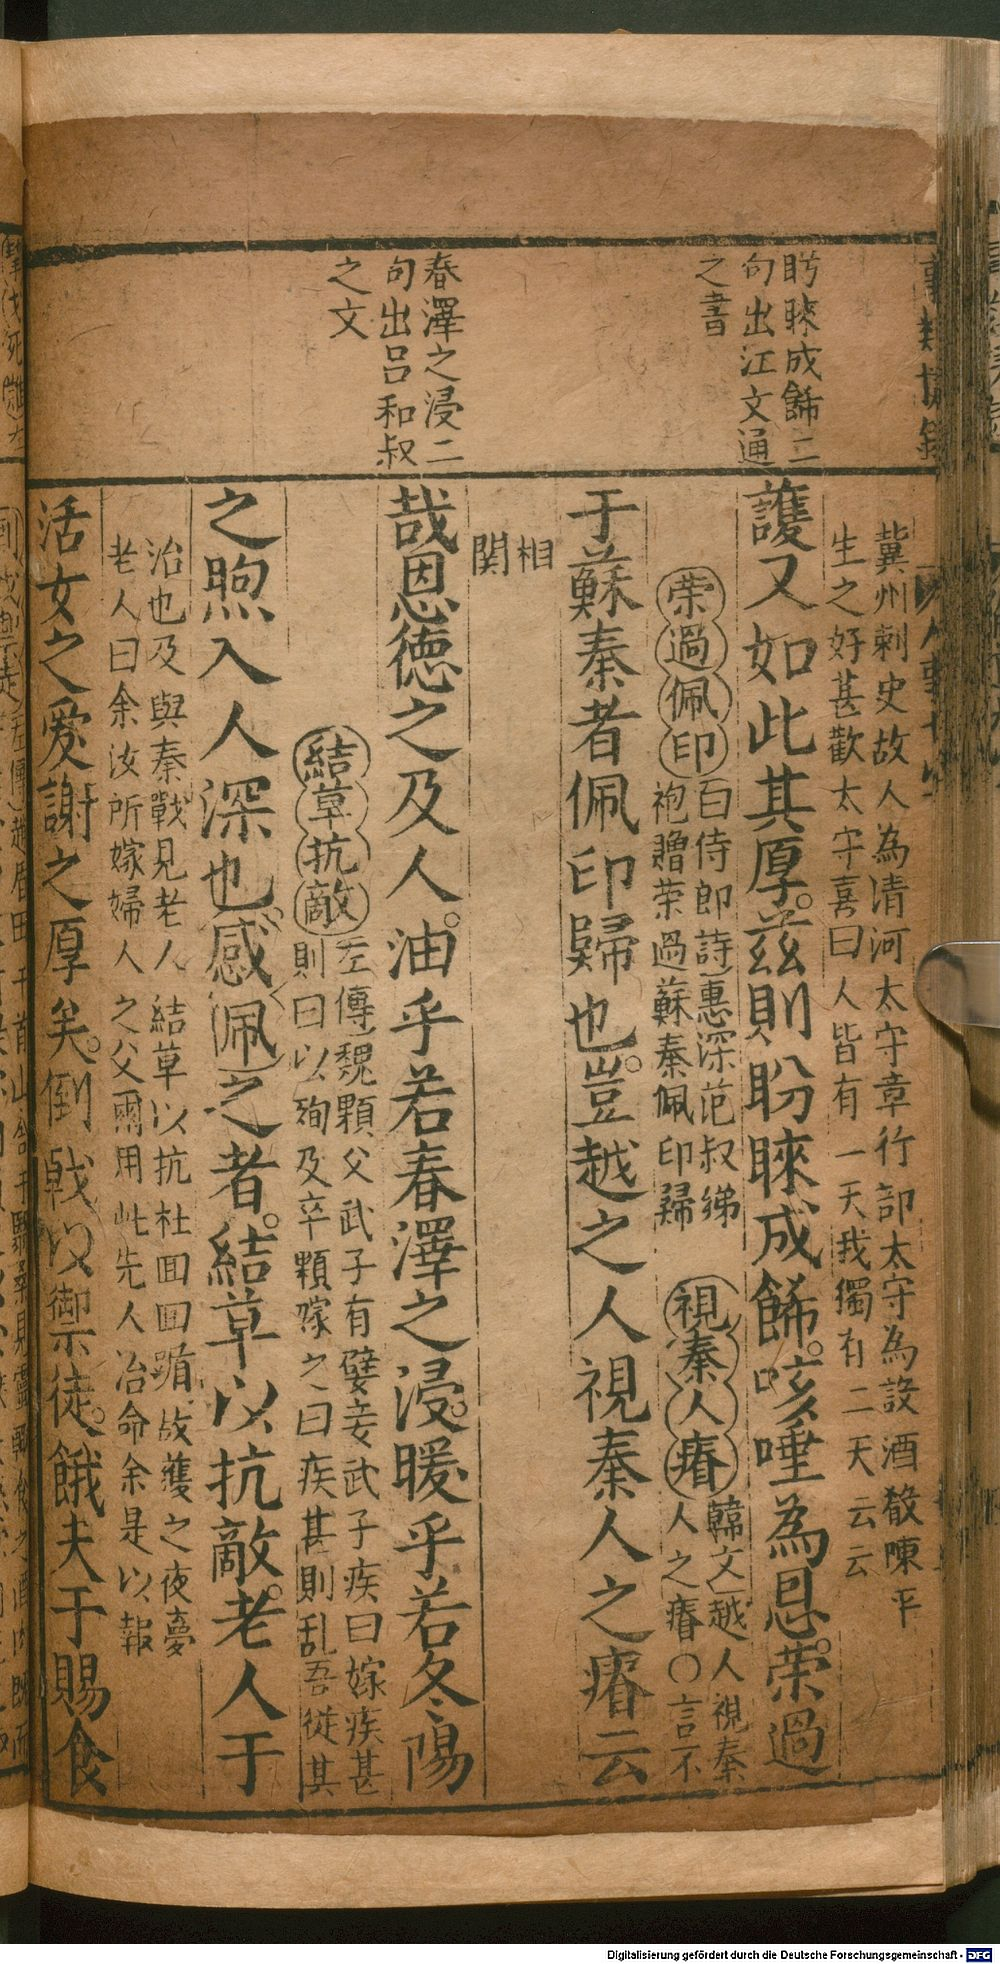 盻睞成餙二
句出江文通
之書
春澤之浸二
句出呂和叔
之文
冀州刺史故人為清河太守章行部太守為設酒殽陳平
生之好甚歡太守喜曰人皆有一天我獨有二天云云
護又如此其厚。兹則盼睞成餙。咳唾為恩。荣過
荣過佩印 百侍郎詩惠深范叔綈
袍贈荣過蘇秦佩印歸
視秦人瘠 韓文越人視秦
人之瘠〇言不
于蘇秦者佩印歸也。豈越之人視秦人之瘠云
相
関
哉恩德之及人。油乎若春澤之浸。暖乎若冬陽
結草抗敵 左傳魏顆父武子有嬖妾武子疾曰嫁疾甚
則曰以殉及卒顆嫁之曰疾甚則乱吾從其
之煦入人深也。感佩之者。結草以抗敵。老人于
治也及與秦戰見老人結草以抗杜回回躓故獲之夜夢
老人曰余汝所嫁婦人之父爾用此先人治命余是以報
活女之爱謝之厚矣。倒戟以禦徒。餓夫于賜食
Digitalisierung gefördert durch die Deutsche Forschungsgemeinschaft - DFG